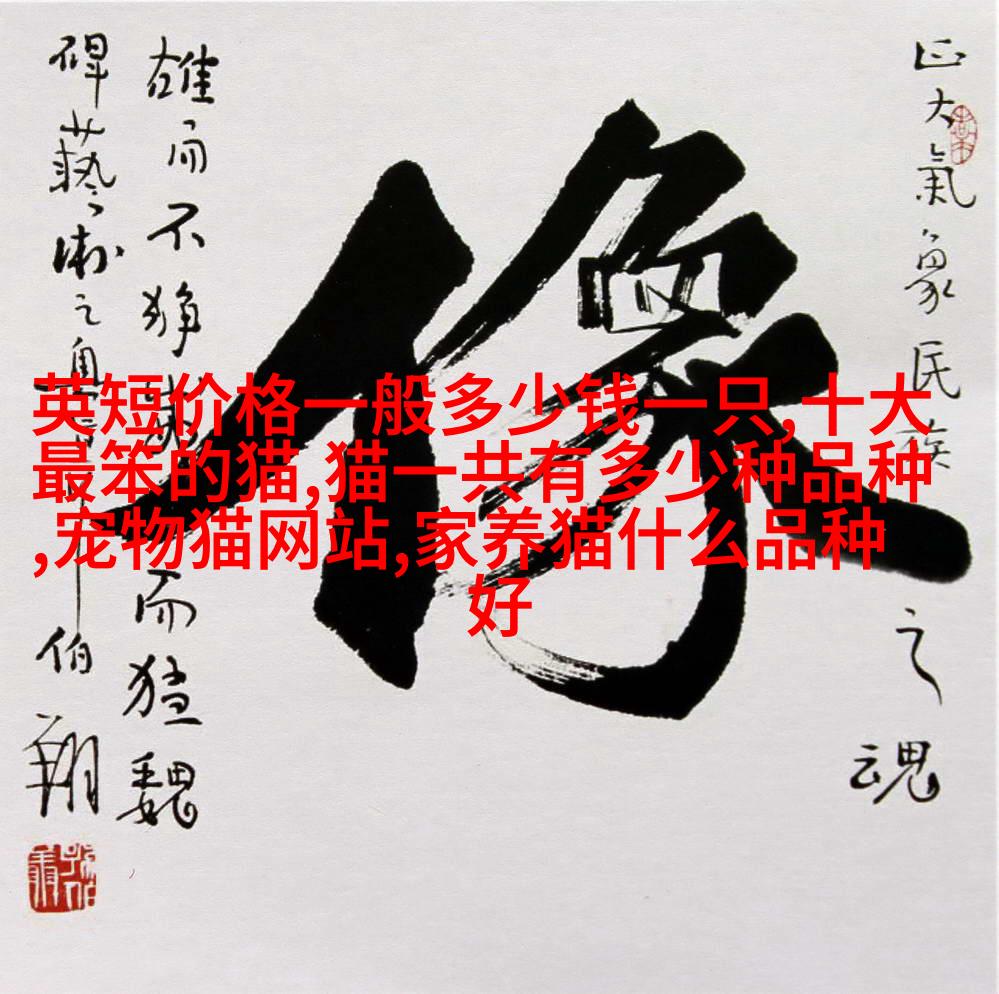 正大氣象民族之魂
像
英短价格一般多少钱一只,十大
最笨的猫,猫一共有多少种品种
,宠物猫网站,家养猫什么品种
好
雄而不狰而猛魏
碑藝術之伯翔